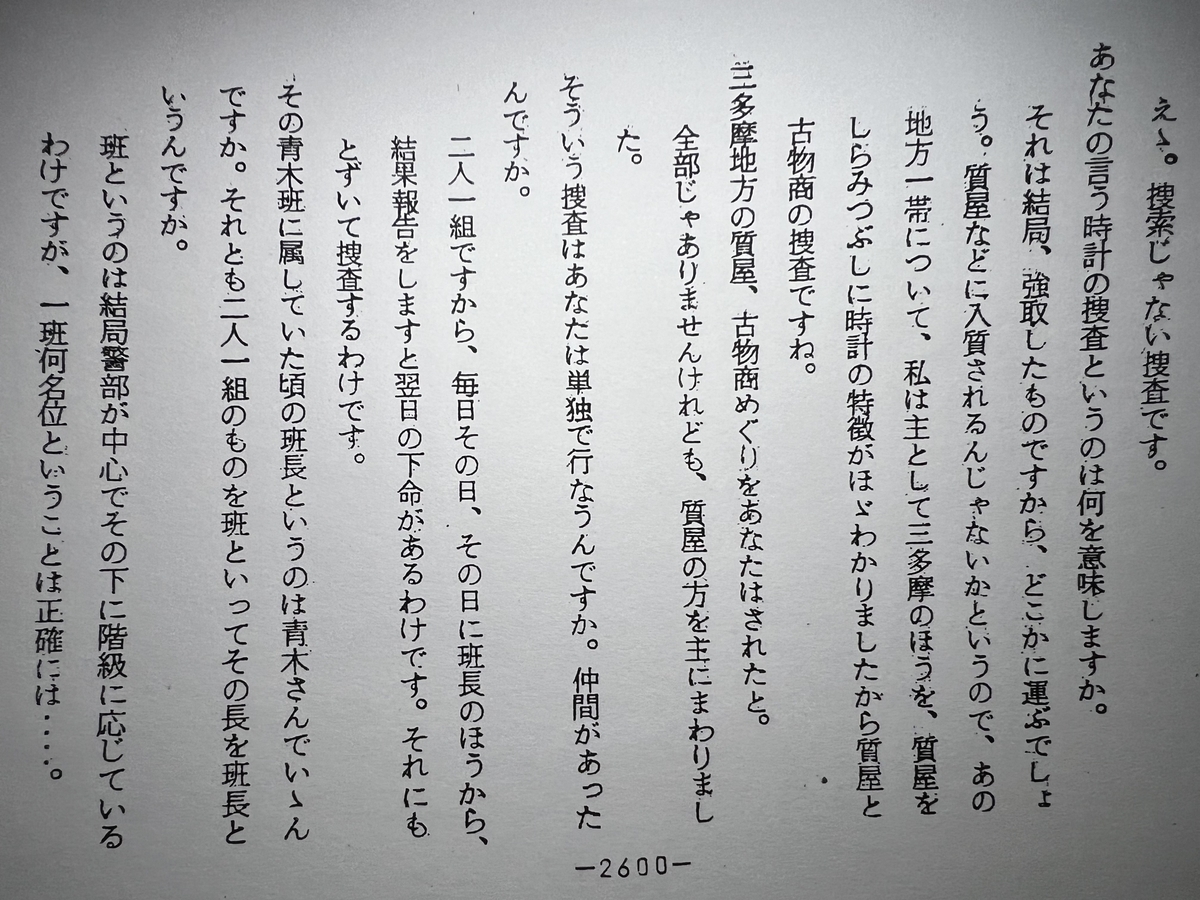 えゝ。捜索じゃない捜査です。
あなたの言う時計の捜査というのは何を意味しますか。
それは結局、強取したものですから、どこかに運ぶでしょ
う。質屋などに入質されるんじゃないかというので、あの
地方一帯について、私は主として三多摩のほうを、質屋を
しらみつぶしに時計の特徴がほゞわかりましたから質屋と
古物商の捜査ですね。
三多摩地方の質屋、古物商めぐりをあなたはされたと。
全部じゃありませんけれども、質屋の方を主にまわりまし
た。
そういう捜査はあなたは単独で行なうんですか。仲間があった
んですか。
二人一組ですから、毎日その日、その日に班長のほうから、
結果報告をしますと翌日の下命があるわけです。それにも
とずいて捜査するわけです。
その青木班に属していた頃の班長というのは青木さんでいゝん
ですか。それとも二人一組のものを班といってその長を班長と
いうんですか。
班というのは結局警部が中心でその下に階級に応じている
わけですが、一班何名位ということは正確には‥‥。
—2600—